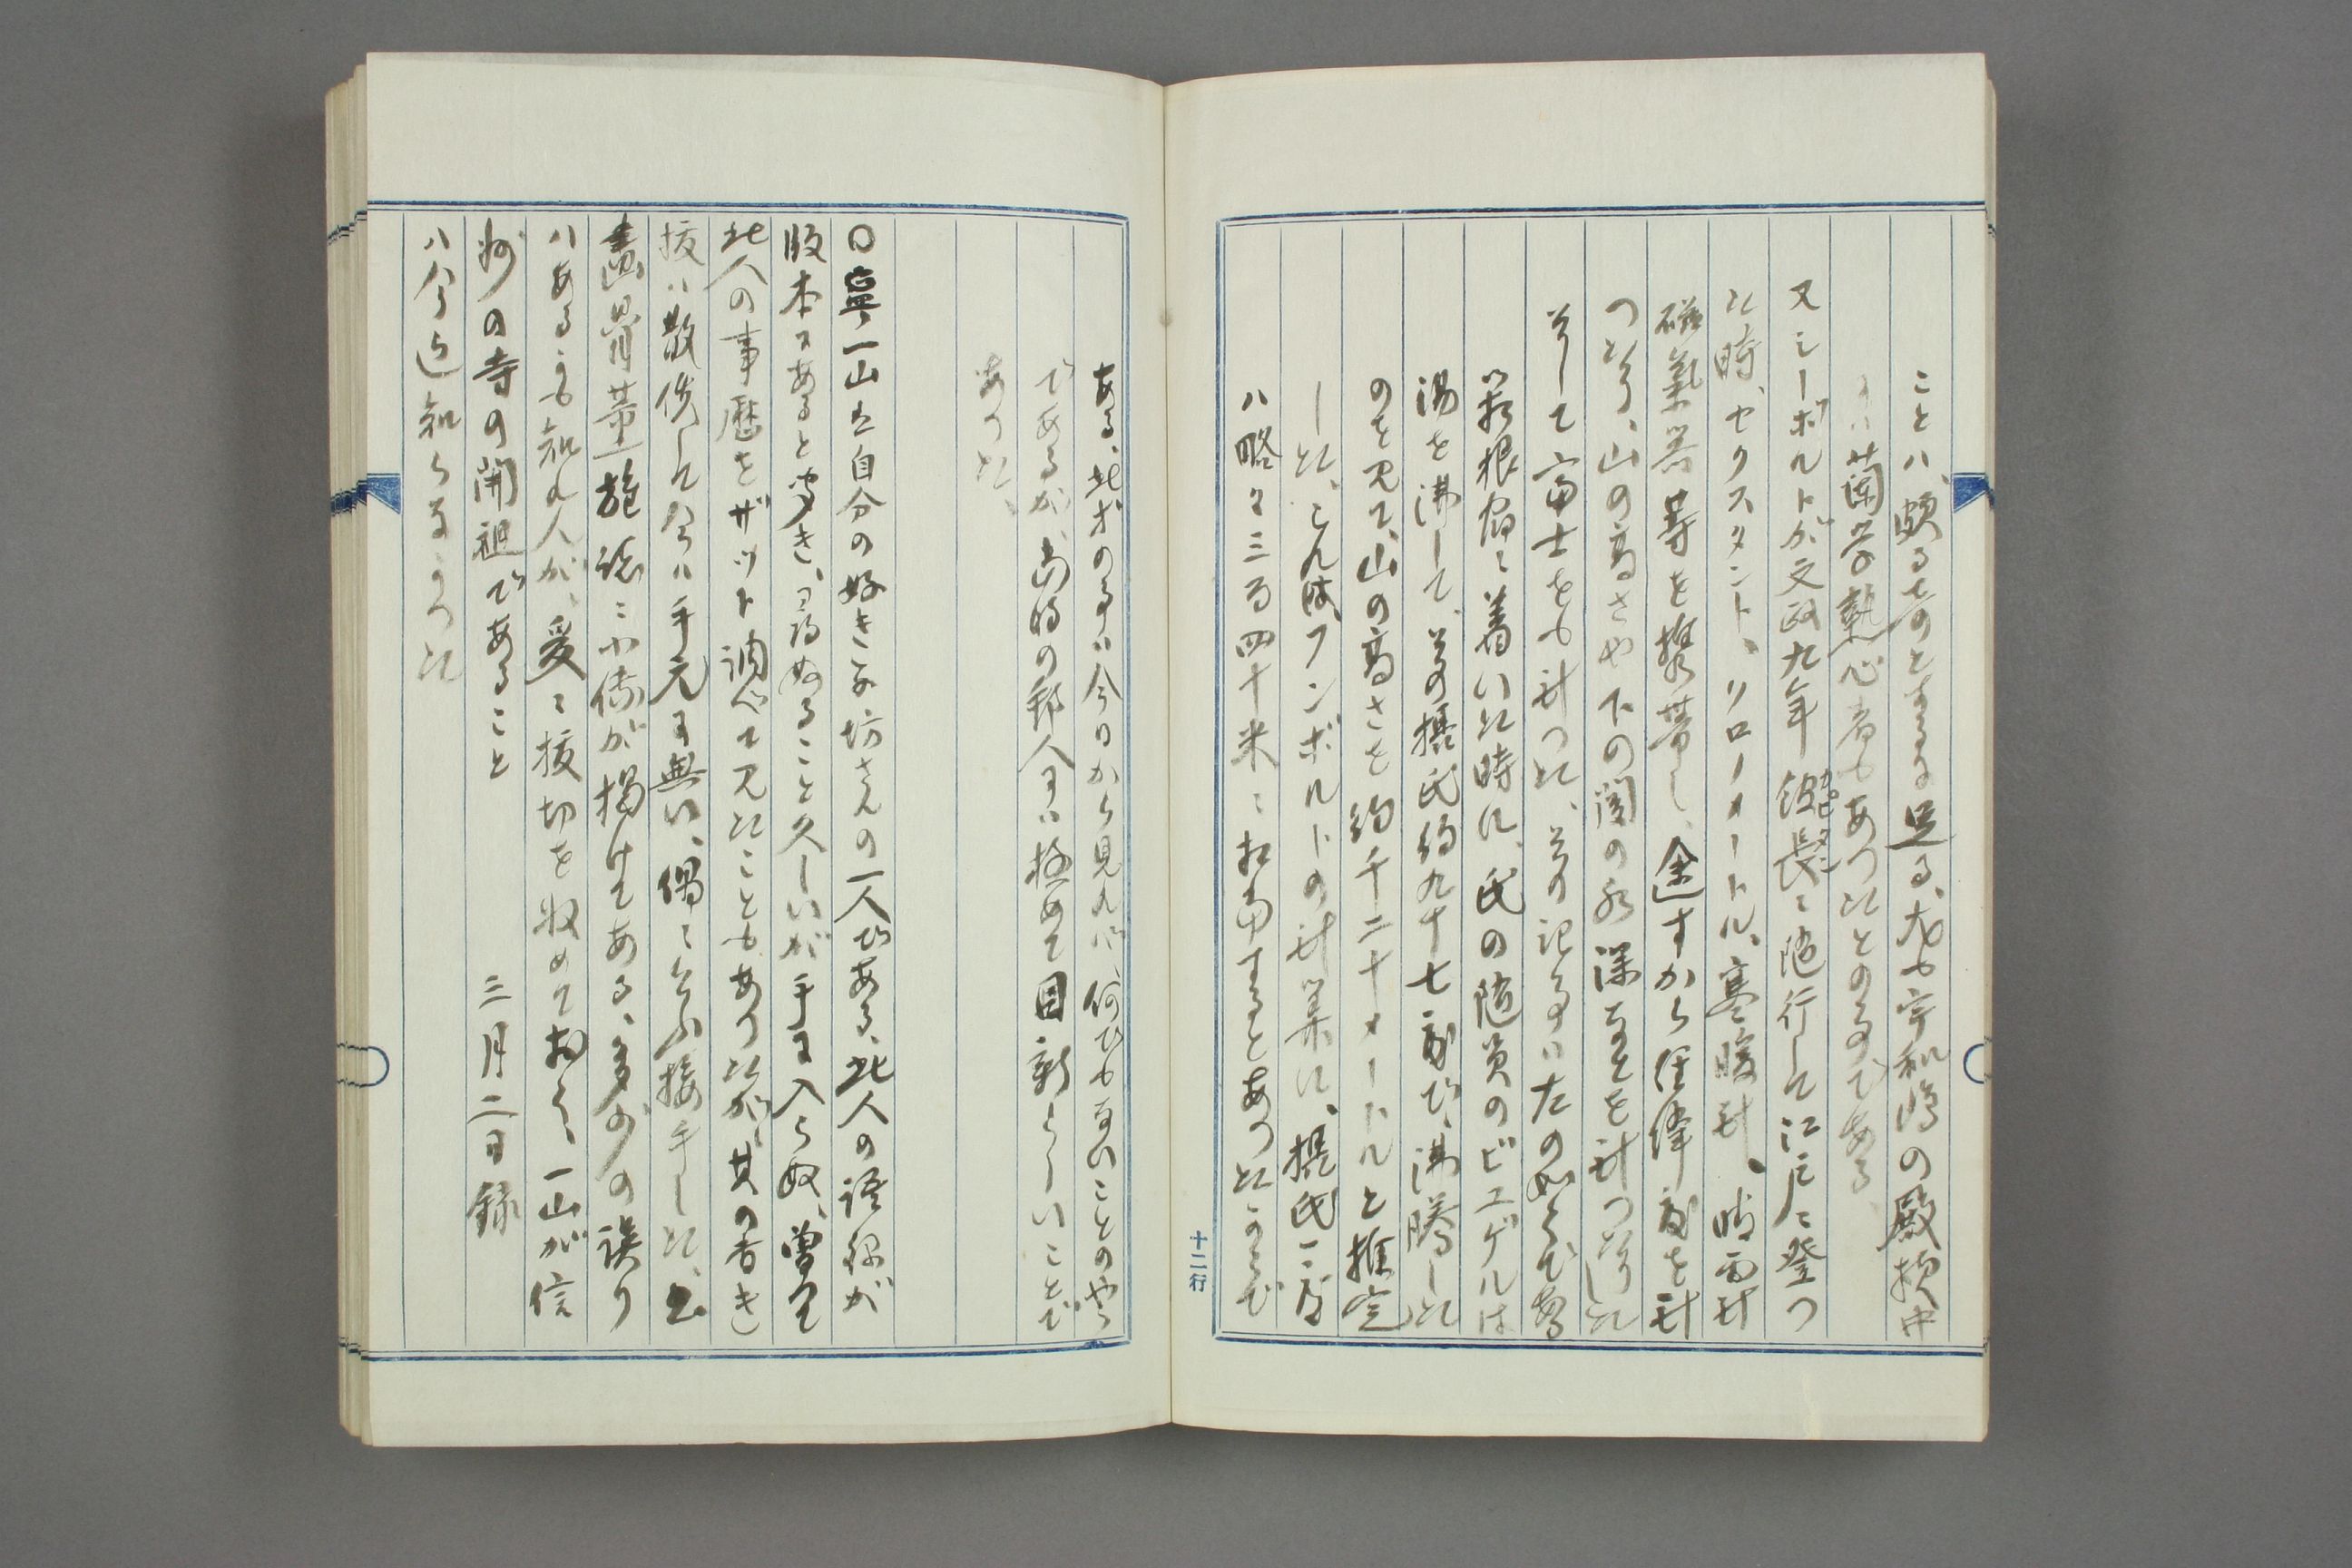 ことハ、頗る奇のとするに足る、尤も宇和島の殿様中
には蘭学執心者もあつたとの事である、
又シーボルトが文政九年鎧長カピタンに随行して江戸に登つ
た時、セクスタント、クロノメートル、寒暖計、晴雨計
磁氣器等を携帯し、途すから経緯度を計
つたり、山の高さや下の関の水深などを計つたりした
そして富士をも計つた、其の記事は左の如くである
箱根宿に着いた時に、氏の随員のビユゲルは
湯を沸して、其の摂氏約九十七度で、沸騰した
のを見て、山の高さを約千二十メートルと推定
した、これは、フンボルトの計算に、摂氏一度
ハ略々三百四十米に相当するとあつたからで
ある、此才の事は今日から見れば、何でも無いことのやう
であるが、当時の邦人には極めて目新らしいことで
あつた、
〇寧一山は自分の好きな坊さんの一人である、此人の語録が
版本にあると聞き、尋ぬること久しいが手に入らぬ、曽て
此人の事歴をザット調べて見たこともあつたが、其の書き
抜は散佚して今は手元に無い、偶々入手した、書
畫骨董雑誌に小傳が掲けてある、多少の誤り
ハあるかも知れんが、爰に抜切を収めておく、一山が信
州の寺の開祖であること 三月二日録
ハ今迄知らなかつた
十二行